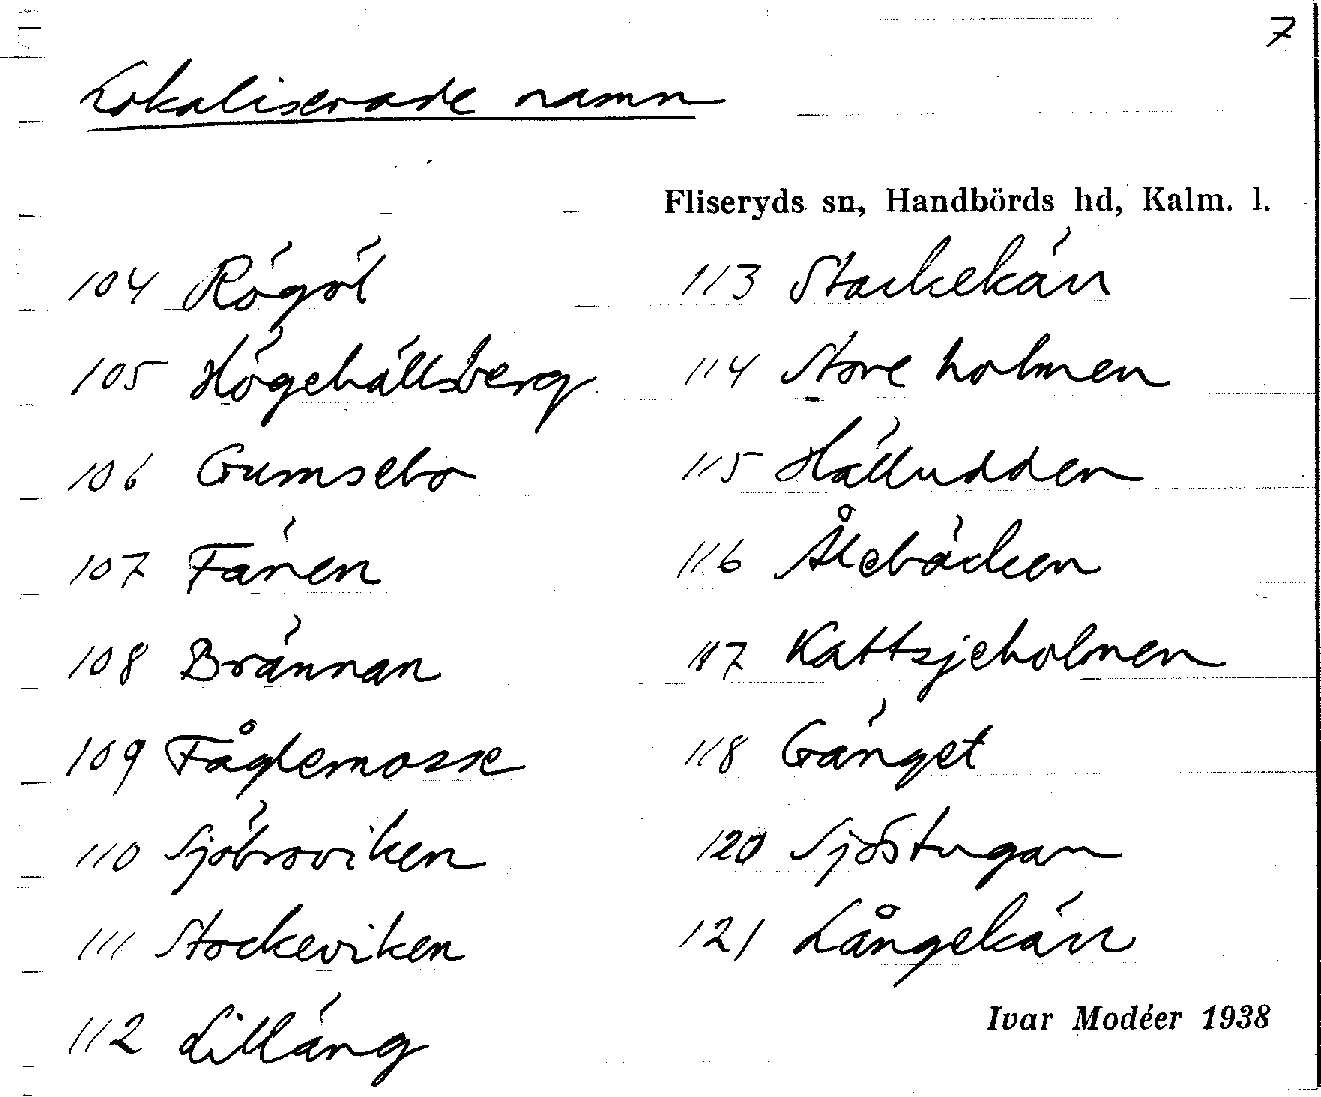 7
Lokaliserade namn
Fliseryds sn, Handbörds hd, Kalm. l.
104 Rögöl
105 Högehällsberg
106 Gumsebo
107 Fänen
108 Brännan
109 Fåglemosse
110 Sjöbroviken
111 Stockeviken
112 Lilläng
113 Stackekärr
114 Store holmen
115 Hälludden
116 Ålebäcken
117 Kattsjeholmen
118 Gänget
120 Sjöstugan
121 Långekärr
Ivar Modéer 1938